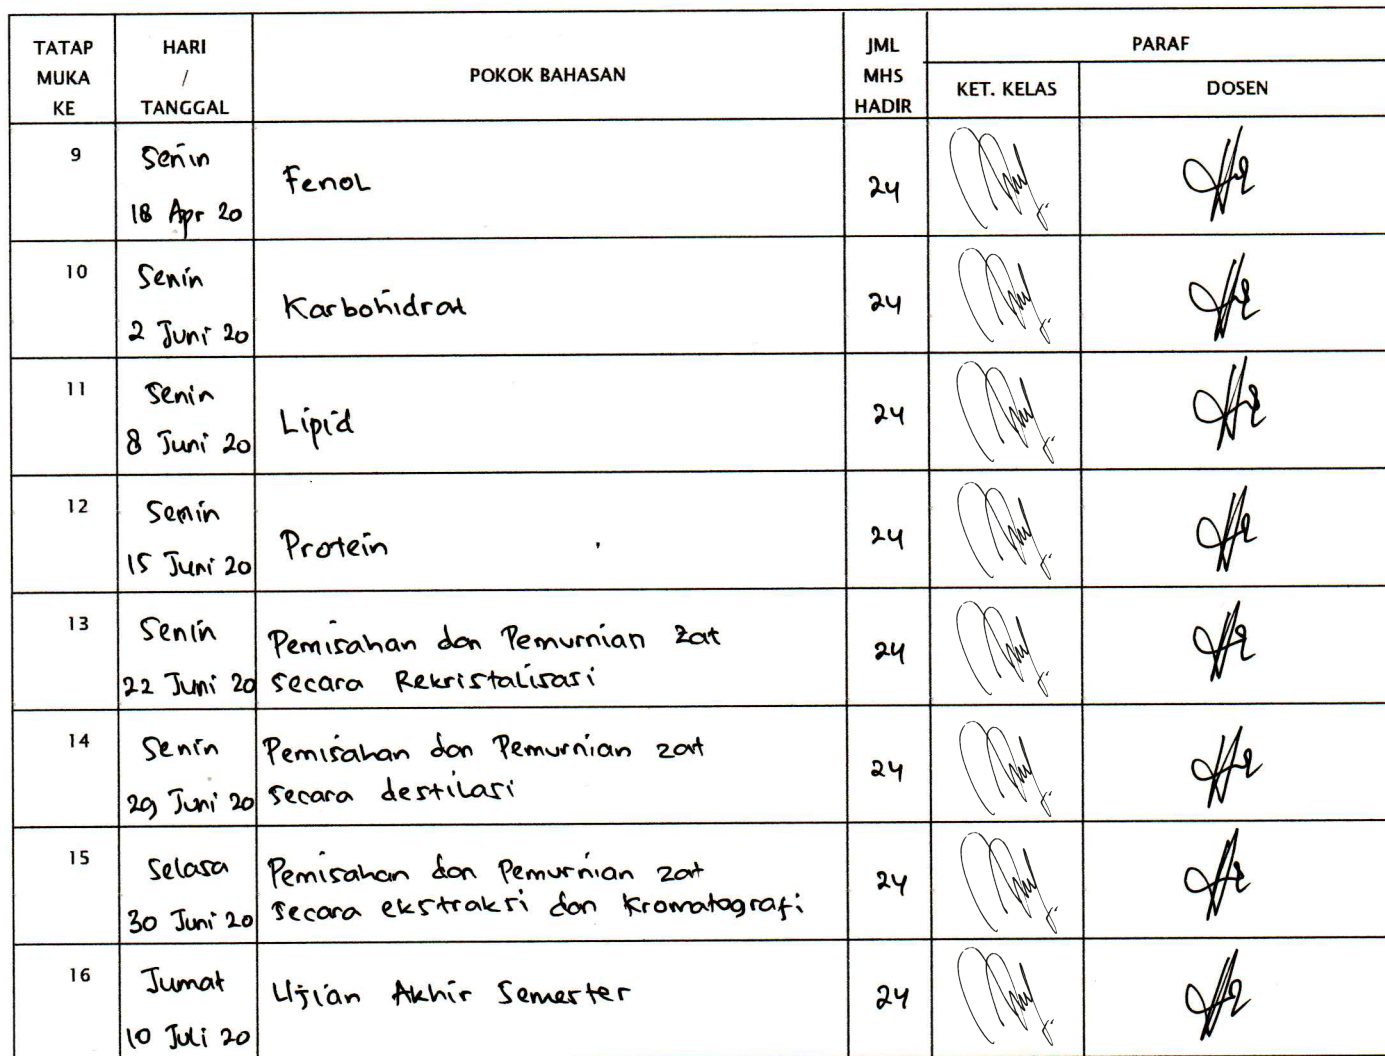 TATAP MUKA KE
HARI / TANGGAL
POKOK BAHASAN
JML MHS HADIR
PARAF
KET. KELAS
DOSEN
9
Senin
18 Apr 20
Fenol
24
10
Senin
2 Juni 20
Karbohidrat
24
11
Senin
8 Juni 20
Lipid
24
12
Senin
15 Juni 20
Protein
24
13
Senin
22 Juni 20
Pemisahan dan Pemurnian zat
secara Rekristalisasi
24
14
Senin
29 Juni 20
Pemisahan dan Pemurnian zat
secara destilasi
24
15
Selasa
30 Juni 20
Pemisahan dan Pemurnian zat
secara ekstraksi dan Kromatografi
24
16
Jumat
10 Juli 20
Ujian Akhir Semester
24